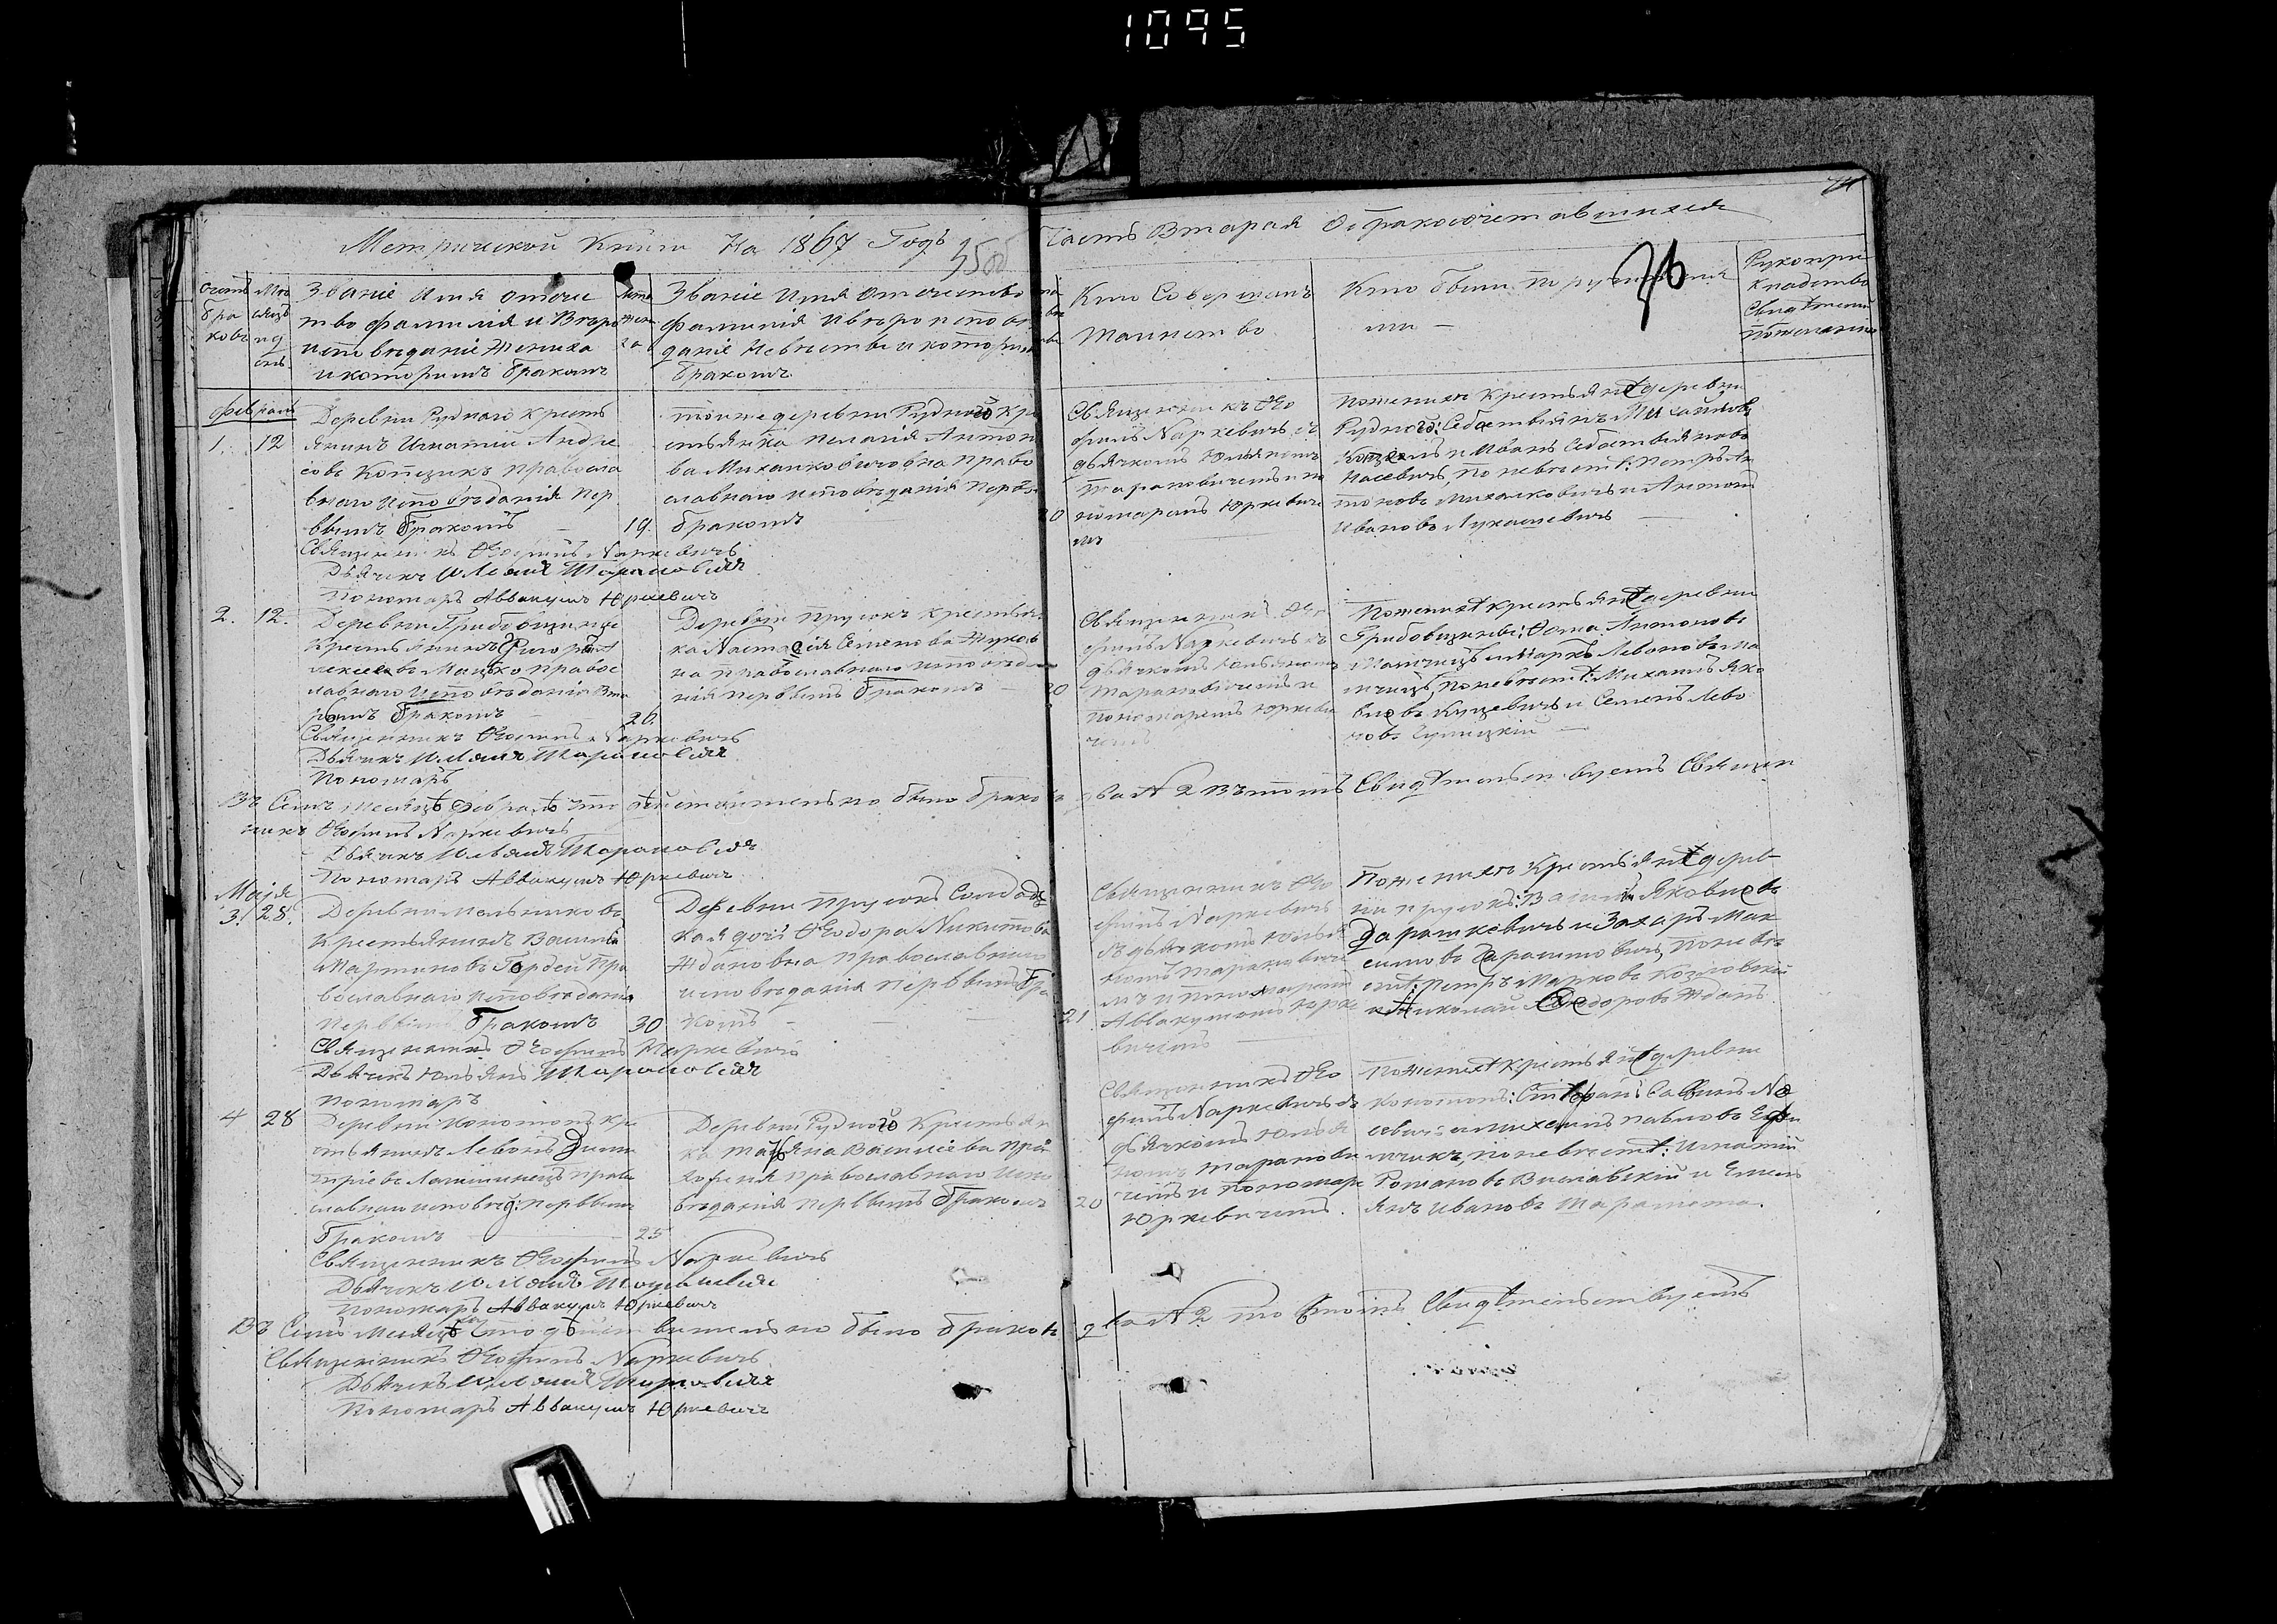 1095
Метрической Книги На 1867 Годъ
Часть Вторая О бракосочетавшихся
76
Счетъ бра ковъ
Мѣ сяцъ и д ень
Званіе Имя отече
тво фамилія и Вѣро
исповѣданіе Жениха
и которымъ бракомъ
Званіе Имя Отечество
фамилія и вѣро испов
даніе Невѣсты и которым
бракомъ
Кто Совершалъ
Таинство
Кто были поручит
ели —
Рукопри
кладство
Свидѣтелей
по желанію
февраль
1. 12
Деревни Рудного Кресть
янинъ Игнатій Андре
евъ Копецикъ правосла
внаго Исповѣданія Пер
вымъ бракомъ — 19.
тойже деревни Рудного Кре
стьянка Пелагія Антон
ва Михалковичовна Право
славнаго исповѣданія Первы
бракомъ
20
Священникъ Ѳео
филъ Наркевичъ съ
дьячкомъ Юльяномъ
Тарановичемъ и по
номаремъ Юркевиче
мъ
По женихѣ Крестьянѣ деревни
Рудного: Себастьянъ Михайловъ
и Иванъ Себастьяновъ
Насевичъ, по невѣстѣ: Петръ Ан
тоновъ Михалковичъ и Антонъ
Ивановъ Лукашевичъ —
Священникъ Ѳеофилъ Наркевичъ
Дьячикъ Юльянъ Тарановичъ
Пономарь Аввакумъ Юркевичъ
2. 12.
Деревни Грибовщизны
Крестьянинъ Григорій А
лексеевъ Мацко правос
лавнаго Исповѣданія Вто
рымъ бракомъ — 26.
Деревни Прусокъ крестьян
ка Настасія Семенова Жуков
на православнаго исповѣда
нія первымъ бракомъ —
20
Священникъ Ѳео
филъ Наркевичъ съ
дьячкомъ Юльяномъ
Тарановичемъ и
пономаремъ Юркеви
чемъ
По женихѣ крестьянѣ деревни
Грибовщизны: Ѳома Антоновъ
и Маркъ Левоновъ
по невѣстѣ: Михаилъ Яко
влевъ Куцевичъ и Семенъ Лево
новъ
Священникъ Ѳеофилъ Наркевичъ
Дьячикъ Юльянъ Тарановичъ
Пономарь
Въ Семъ Месяцѣ Февралѣ что дѣйствительно было браковъ два N 2 въ томъ Свидѣтельствуетъ Священ
никъ Ѳеофилъ Наркевичъ
Дьячикъ Юльянъ Тарановичъ
Пономарь Аввакумъ Юркевичъ
Маія
3. 28.
Деревни Мельниковъ
Крестьянинъ Василій
Мартиновъ Гордей Пра
вославнаго исповѣданія
первымъ бракомъ 30
Деревни Прусокъ Солдатс
кая дочь Ѳеодора Никитова
Ждановна Православнаго
исповѣданія Первымъ бра
комъ — — —
21
Священникъ Ѳео
филъ Наркевичъ
съ дьячкомъ Юлья
номъ Тарановиче
мъ и пономаремъ
Аввакумомъ Юрке
вичемъ
По женихѣ Крестьянѣ дерев
ни прусокъ: Яковлевъ
Дарашкевичъ и Захаръ Мак
симовъ по невѣ
стѣ: Петръ Марковъ Козловскій
и Николай Ѳеодоровъ Жданъ.
Священникъ Ѳеофилъ Наркевичъ
Дьячикъ Юльянъ Тарановичъ
Пономарь
4 28
Деревни Копотокъ Кре
стьянинъ Левонъ Дими
тріевъ Лашинецъ право
славнаго исповѣд: первымъ
бракомъ — 25
Деревни Рудного Крестьян
ка Татьяна Васильева
Православнаго Испо
вѣданія Первымъ бракомъ
20
Священникъ Ѳео
филъ Наркевичъ съ
дьячкомъ Юлья
номъ Таранови
чемъ и Пономаре
Юркевичемъ.
По женихѣ Крестьянѣ деревни
Копотокъ: Стефанъ Савинъ
и Михаилъ Павловъ
по невѣстѣ: Игнатій
Романовъ Виславскій и Емель
янъ Ивановъ
Священникъ Ѳеофилъ Наркевичъ
Дьячикъ Юльянъ Тарановичъ
Пономарь Аввакумъ Юркевичъ
Въ Семъ Месяцѣ что дѣйствительно было браковъ два N 2 то въ томъ Свидѣтельствуетъ
Священникъ Ѳеофилъ Наркевичъ
Дьячикъ Юльянъ Тарановичъ
Пономарь Аввакумъ Юркевичъ